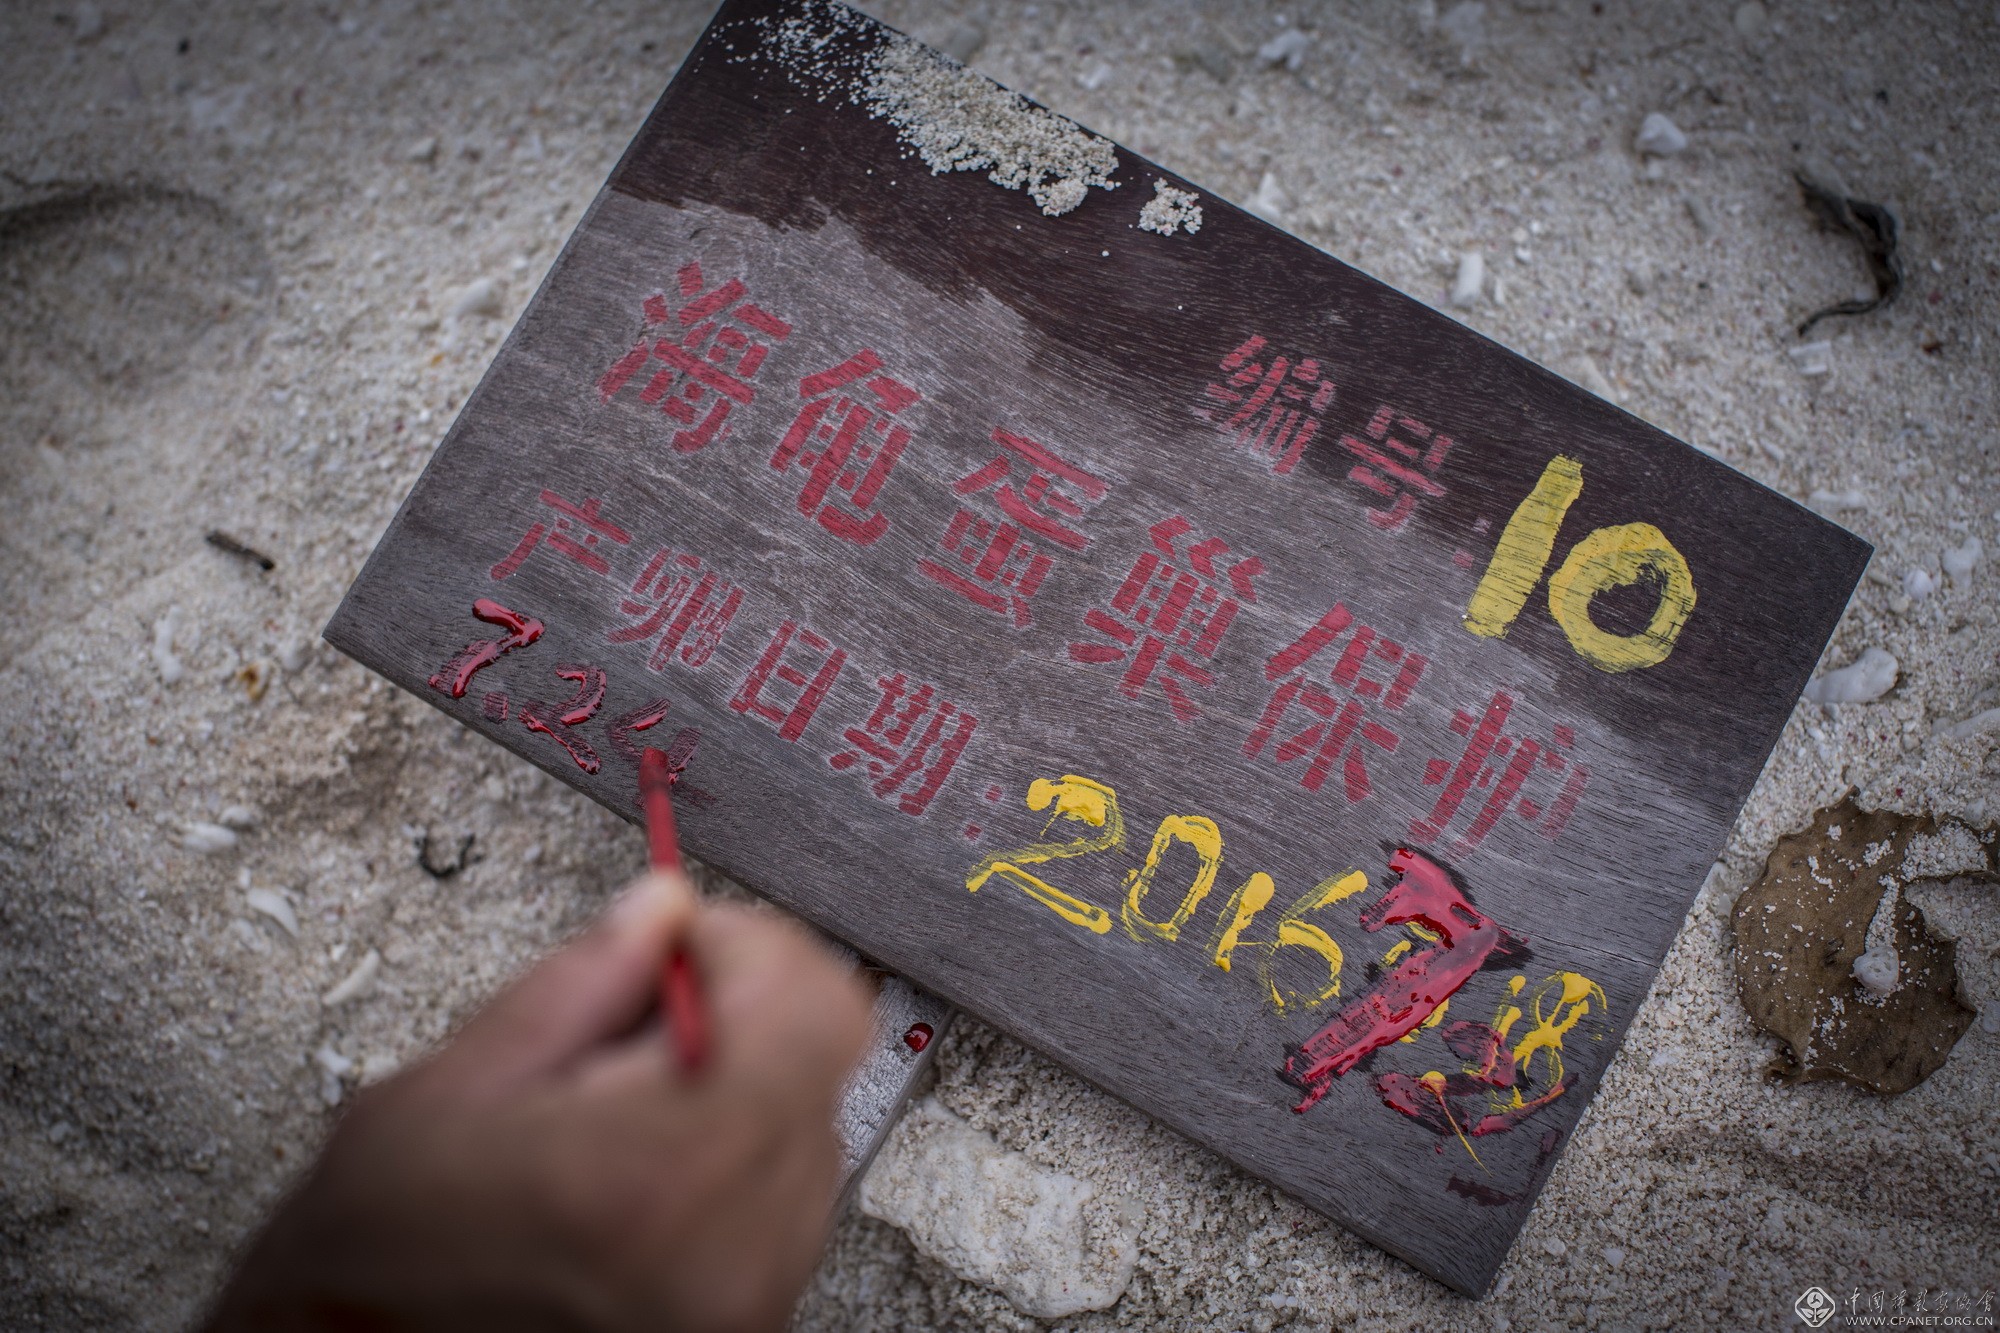 编号:10
海龟蛋巢保护
产卵日期:2016.7.18
7.24
中国摄影家协会
WWW.CPANET.ORG.CN